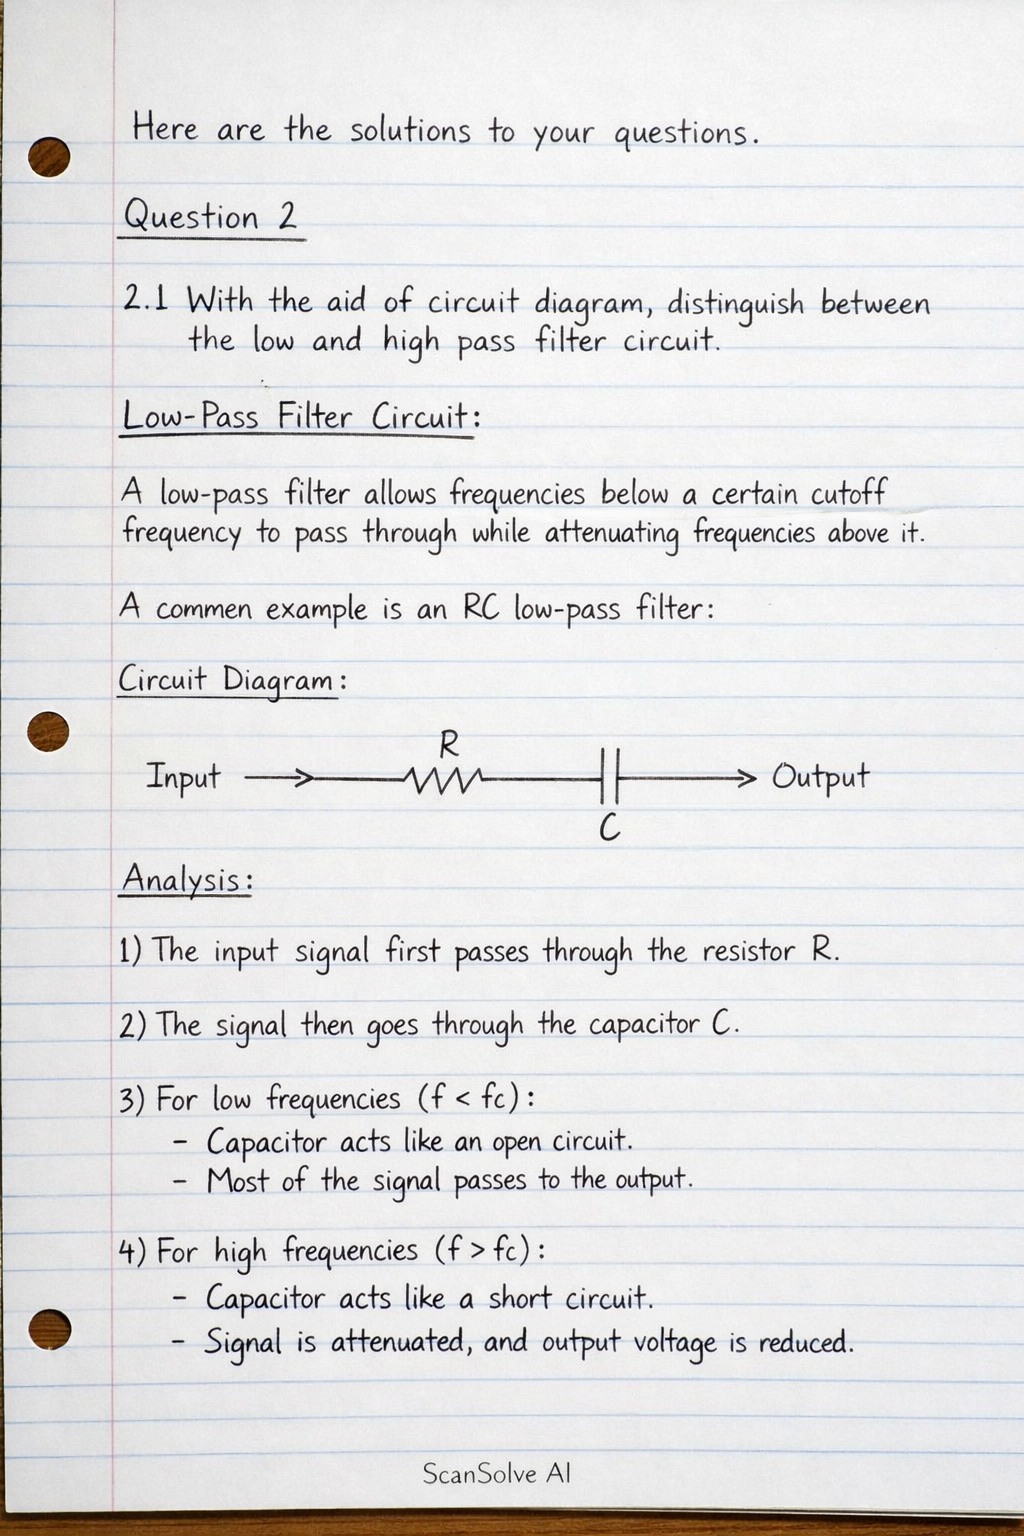 Here are the solutions to your questions.
Question 2
2.1 With the aid of circuit diagram, distinguish between
the low and high pass filter circuit.
Low-Pass Filter Circuit:
A low-pass filter allows frequencies below a certain cutoff
frequency to pass through while attenuating frequencies above it.
A commen example is an RC low-pass filter:
Circuit Diagram:
R
Input
Output
C
Analysis:
1) The input signal first passes through the resistor R.
2) The signal then goes through the capacitor C.
3) For low frequencies (f < fc):
- Capacitor acts like an open circuit.
- Most of the signal passes to the output.
4) For high frequencies (f > fc):
- Capacitor acts like a short circuit.
- Signal is attenuated, and output voltage is reduced.
ScanSolve AI